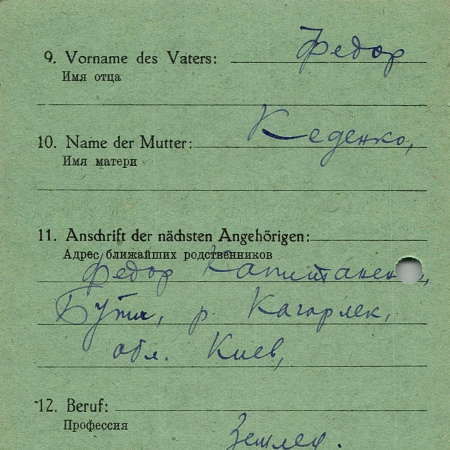 9. Vorname des Vaters: Федор
Имя отца
10. Name der Mutter: Кеденко,
Имя матери
11. Anschrift der nächsten Angehörigen:
Адрес ближайших родственников
Федор
р. Кагарлек,
обл. Киев,
12. Beruf:
Профессия
Землед.